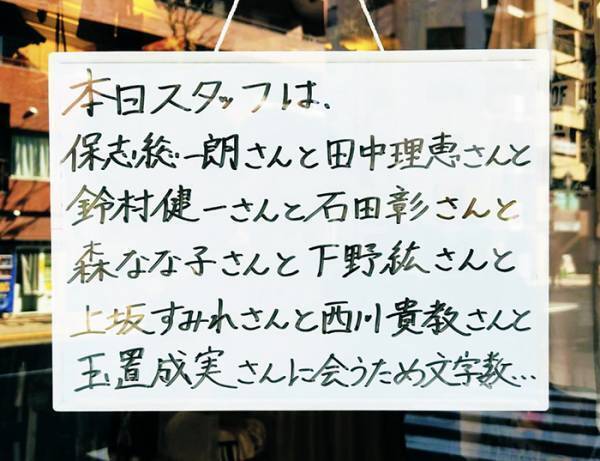 本日スタッフは、
保志総一朗さんと田中理恵さんと
鈴村健一さんと石田彰さんと
森なな子さんと下野紘さんと
上坂すみれさんと西川貴教さんと
玉置成実さんに会うため文字数…
OF